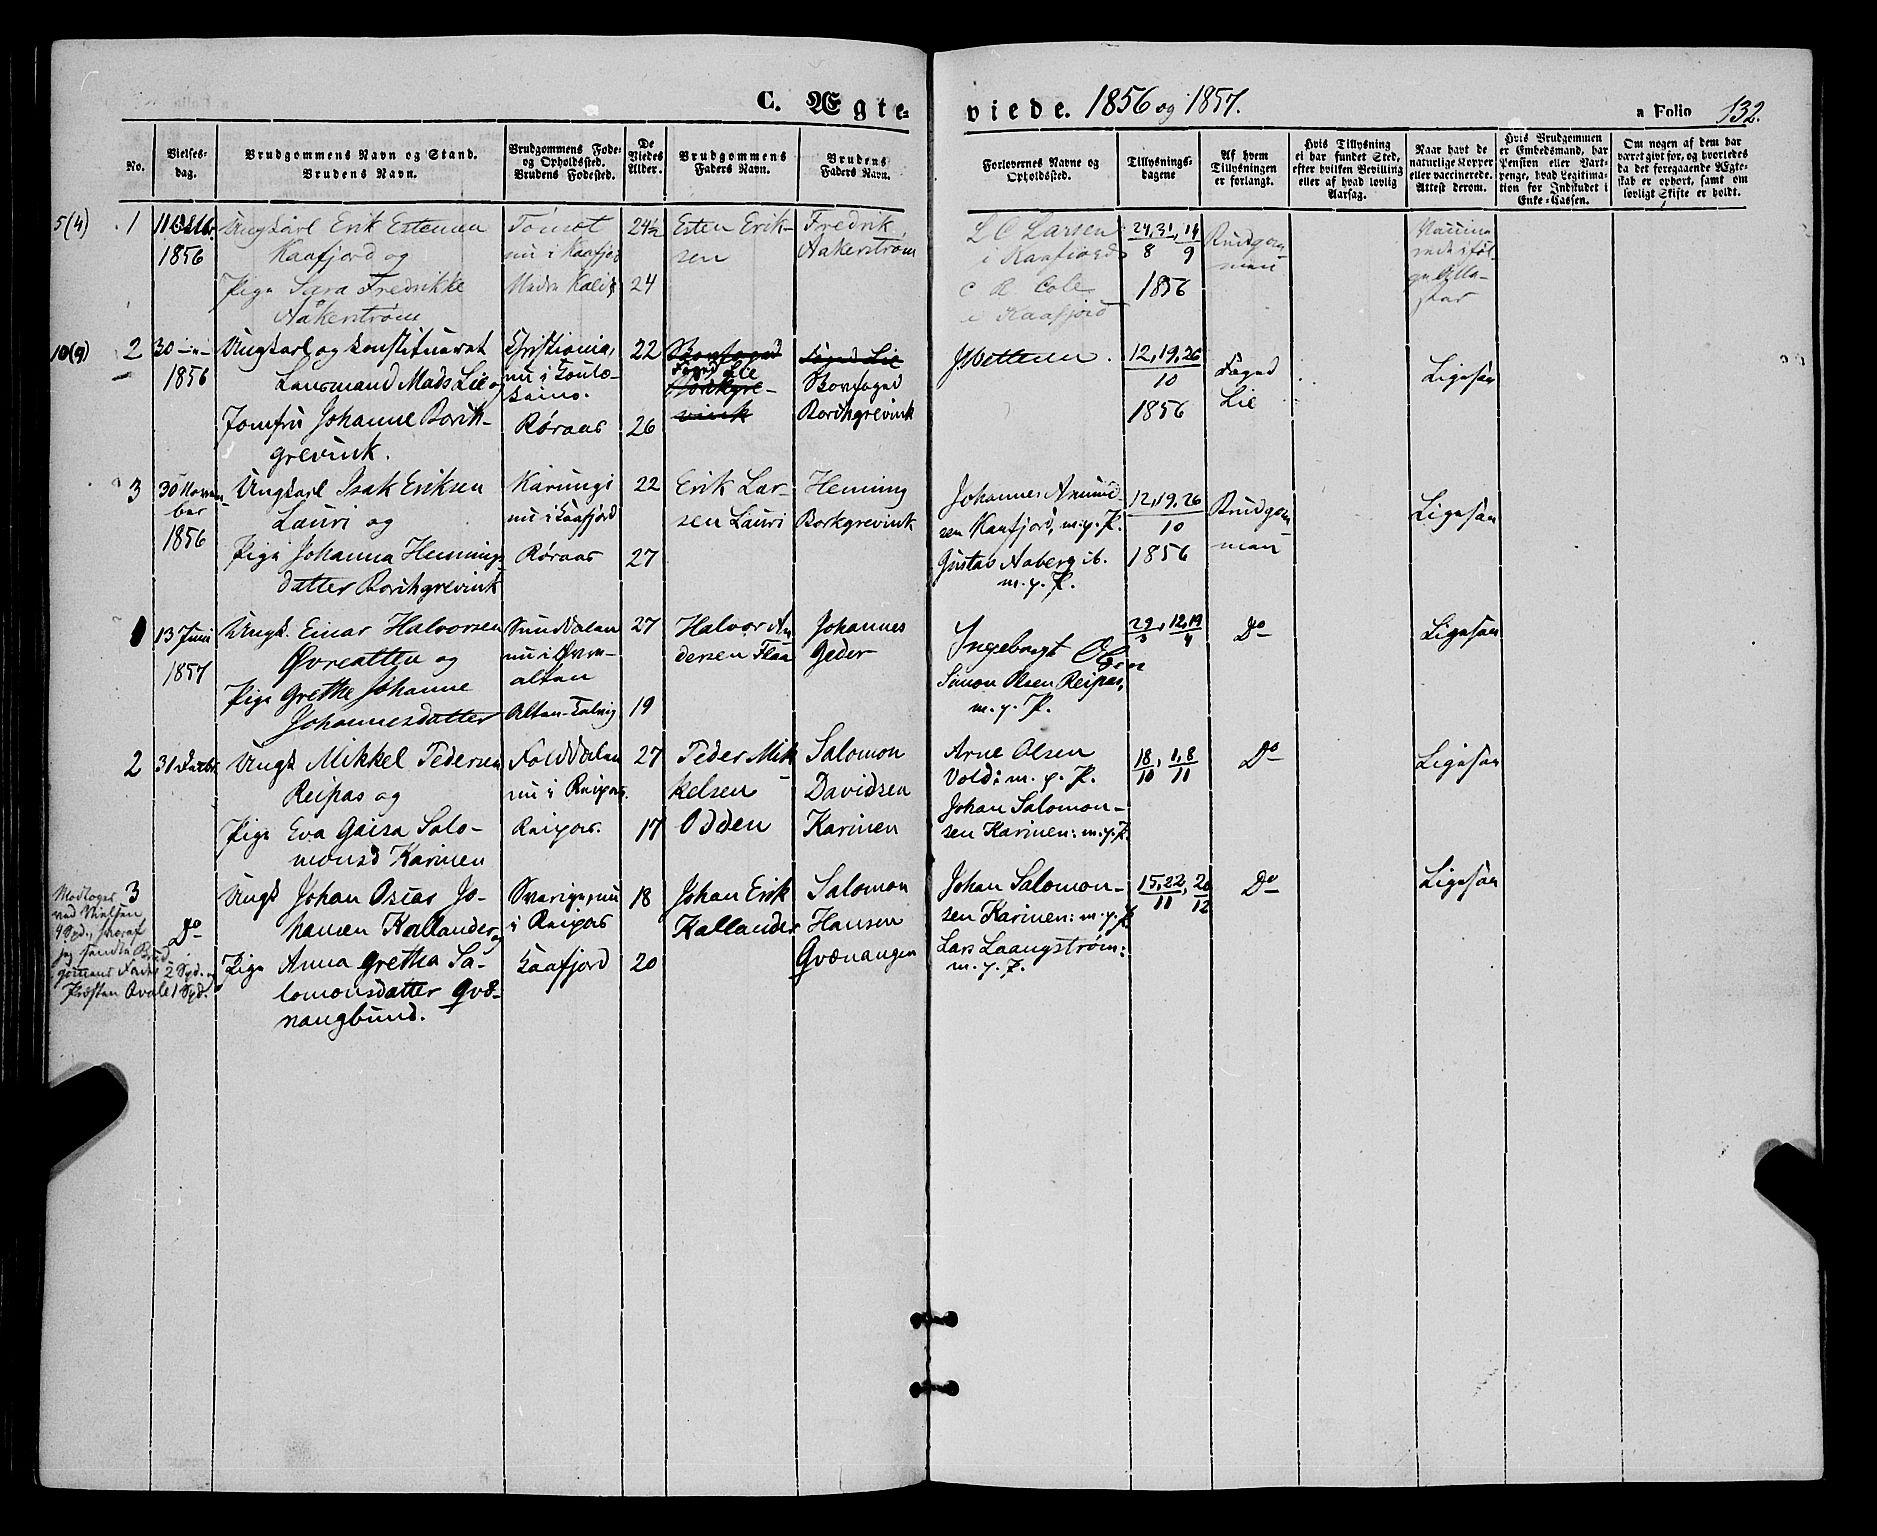 C. Ægte-
viede. 1856 og 1857.
a Folio 132.
No.
Vielses-
dag.
Brudgommens Navn og Stand.
Brudens Navn.
Brudgommens Føde-
og Opholdssted.
Brudens Fødested.
De
Viedes
Alder.
Brudgommens
Faders Navn.
Brudens
Faders Navn.
Forlovernes Navne og
Opholdssted.
Tillysnings-
dagene
Af hvem
Tillysningen
er forlangt.
Hvis Tillysning
ei har fundet Sted,
efter hvilken Bevilling
eller af hvad lovlig
Aarsag.
Naar havt de
naturlige Kopper
eller vaccinerede.
Attest derom.
Hvis Brudgommen
er Embedsmand, har
Pension eller Vart-
penge, hvad Legitima-
tion for Indskudet i
Enke-Cassen.
Om nogen af dem har
været givt før, og hvorledes
da det foregaaende Ægte-
skab er ophørt, samt om
lovligt Skifte er holdt.
5(4) 1
1856
Ungkarl Erik Estensen
Kaafjord og
Pige Sara Fredrikke
Aakerstrøm
nu i Kaafjord
24½
24
Esten Erik-
sen
Fredrik
Aakerstrøm
L C Larsen
i Kaafjord
C R Cole
i Kaafjord
24,31, 14
8 9
1856
Brudgom
men
10(9) 2
30
1856
Ungkarl og konstitueret
Lensmand Mads Lie og
Jomfru Johanne Borch-
grevink.
Christiania,
nu i Kouto-
keino.
Røraas
22
26
Foged Lie
Borchgre-
vink
Foged Lie
Borchgrevink
12,19,26
10
1856
Foged
Lie
Ligesaa
3
30 Novem-
ber
1856
Ungkarl Isak Eriksen
Lauri og
Pige Johanna Henning-
datter Borchgrevink
Karungi
nu i Kaafjord
Røraas
22
27
Erik Lar-
sen Lauri
Henning
Borkgrevink
Johannes Amund-
sen Kaafjord, m. p. P.
Gustav Aaberg ib.
m. p. P.
12,19,26
10
1856
Brudgom
man
Ligesaa
13 Juni
1857
Ungk. Einar Halvorsen
Øvrealten og
Pige Grethe Johanne
Johannesdatter
Sunddalen
nu i Øvre-
alten
Alten-Talvig
27
19
Halvor An
dersen Flaa
Johannes
Geder
Ingebrigt Olsen
Simon Olsen Reipas,
m. p. P.
29, 12,19
3 4
Do
Ligesaa
2
31
Ungk Mikkel Pedersen
Reipas og
Pige Eva Gaisa Salo-
monsd Karinen
Folddalen
nu i Reipas.
Reipas.
27
17
Peder Mik
kelsen
Odden
Salomon
Davidsen
Karinen
Arne Olsen
Vold: m. p. P.
Johan Salomon-
sen Karinen: m. p. P.
18, 1,8
10 11
Do
Ligesaa
3
Do
Modtaget
ved Vielsen
jeg sendte Brud
gommens Fader 2 Spd. og
Præsten Qvale 1 Spd.
Ungk Johan Oscar Jo-
hansen Kallander og
Pige Anna Gretha Sa-
lomonsdatter Qvæ-
nangbund.
Sverige, nu
i Reipas
Kaafjord
18
20
Johan Erik
Kallander
Salomon
Hansen
Qvænangen
Johan Salomon-
sen Karinen: m. p. P.
Lars Laangstrøm:
m. p. P.
15,22, 20
11 12
Do
Ligesaa